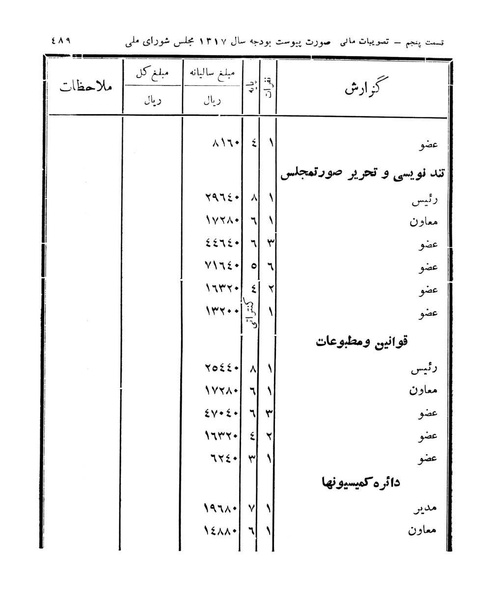 قسمت پنجم – تصویبات مالی صورت پیوست بودجه سال ۱۳۱۷ مجلس شورای ملی ٤٨٩
گزارش نفرات پایه مبلغ سالیانه ریال مبلغ کل ریال ملاحظات
عضو ۱ ٤ ۸۱٦۰
تند نویسی و تحریر صورتمجلس
رئیس ۱ ۸ ۲۹٦٤۰
معاون ۱ ٦ ۱۷۲۸۰
عضو ۳ ٦ ٤٤٦٤۰
عضو ٦ ٥ ۷۱٦٤۰
عضو ۲ ٤ ۱٦۳۲۰
عضو ۱ کنتراتی ۱۳۲۰۰
قوانین ومطبوعات
رئیس ۱ ۸ ۲٥٤٤۰
معاون ۱ ٦ ۱۷۲۸۰
عضو ۳ ٦ ٤۷۰٤۰
عضو ۲ ٤ ۱٦۳۲۰
عضو ۱ ۳ ٦۲٤۰
دائره کمیسیونها
مدیر ۱ ۷ ۱۹٦۸۰
معاون ۱ ٦ ۱٤۸۸۰